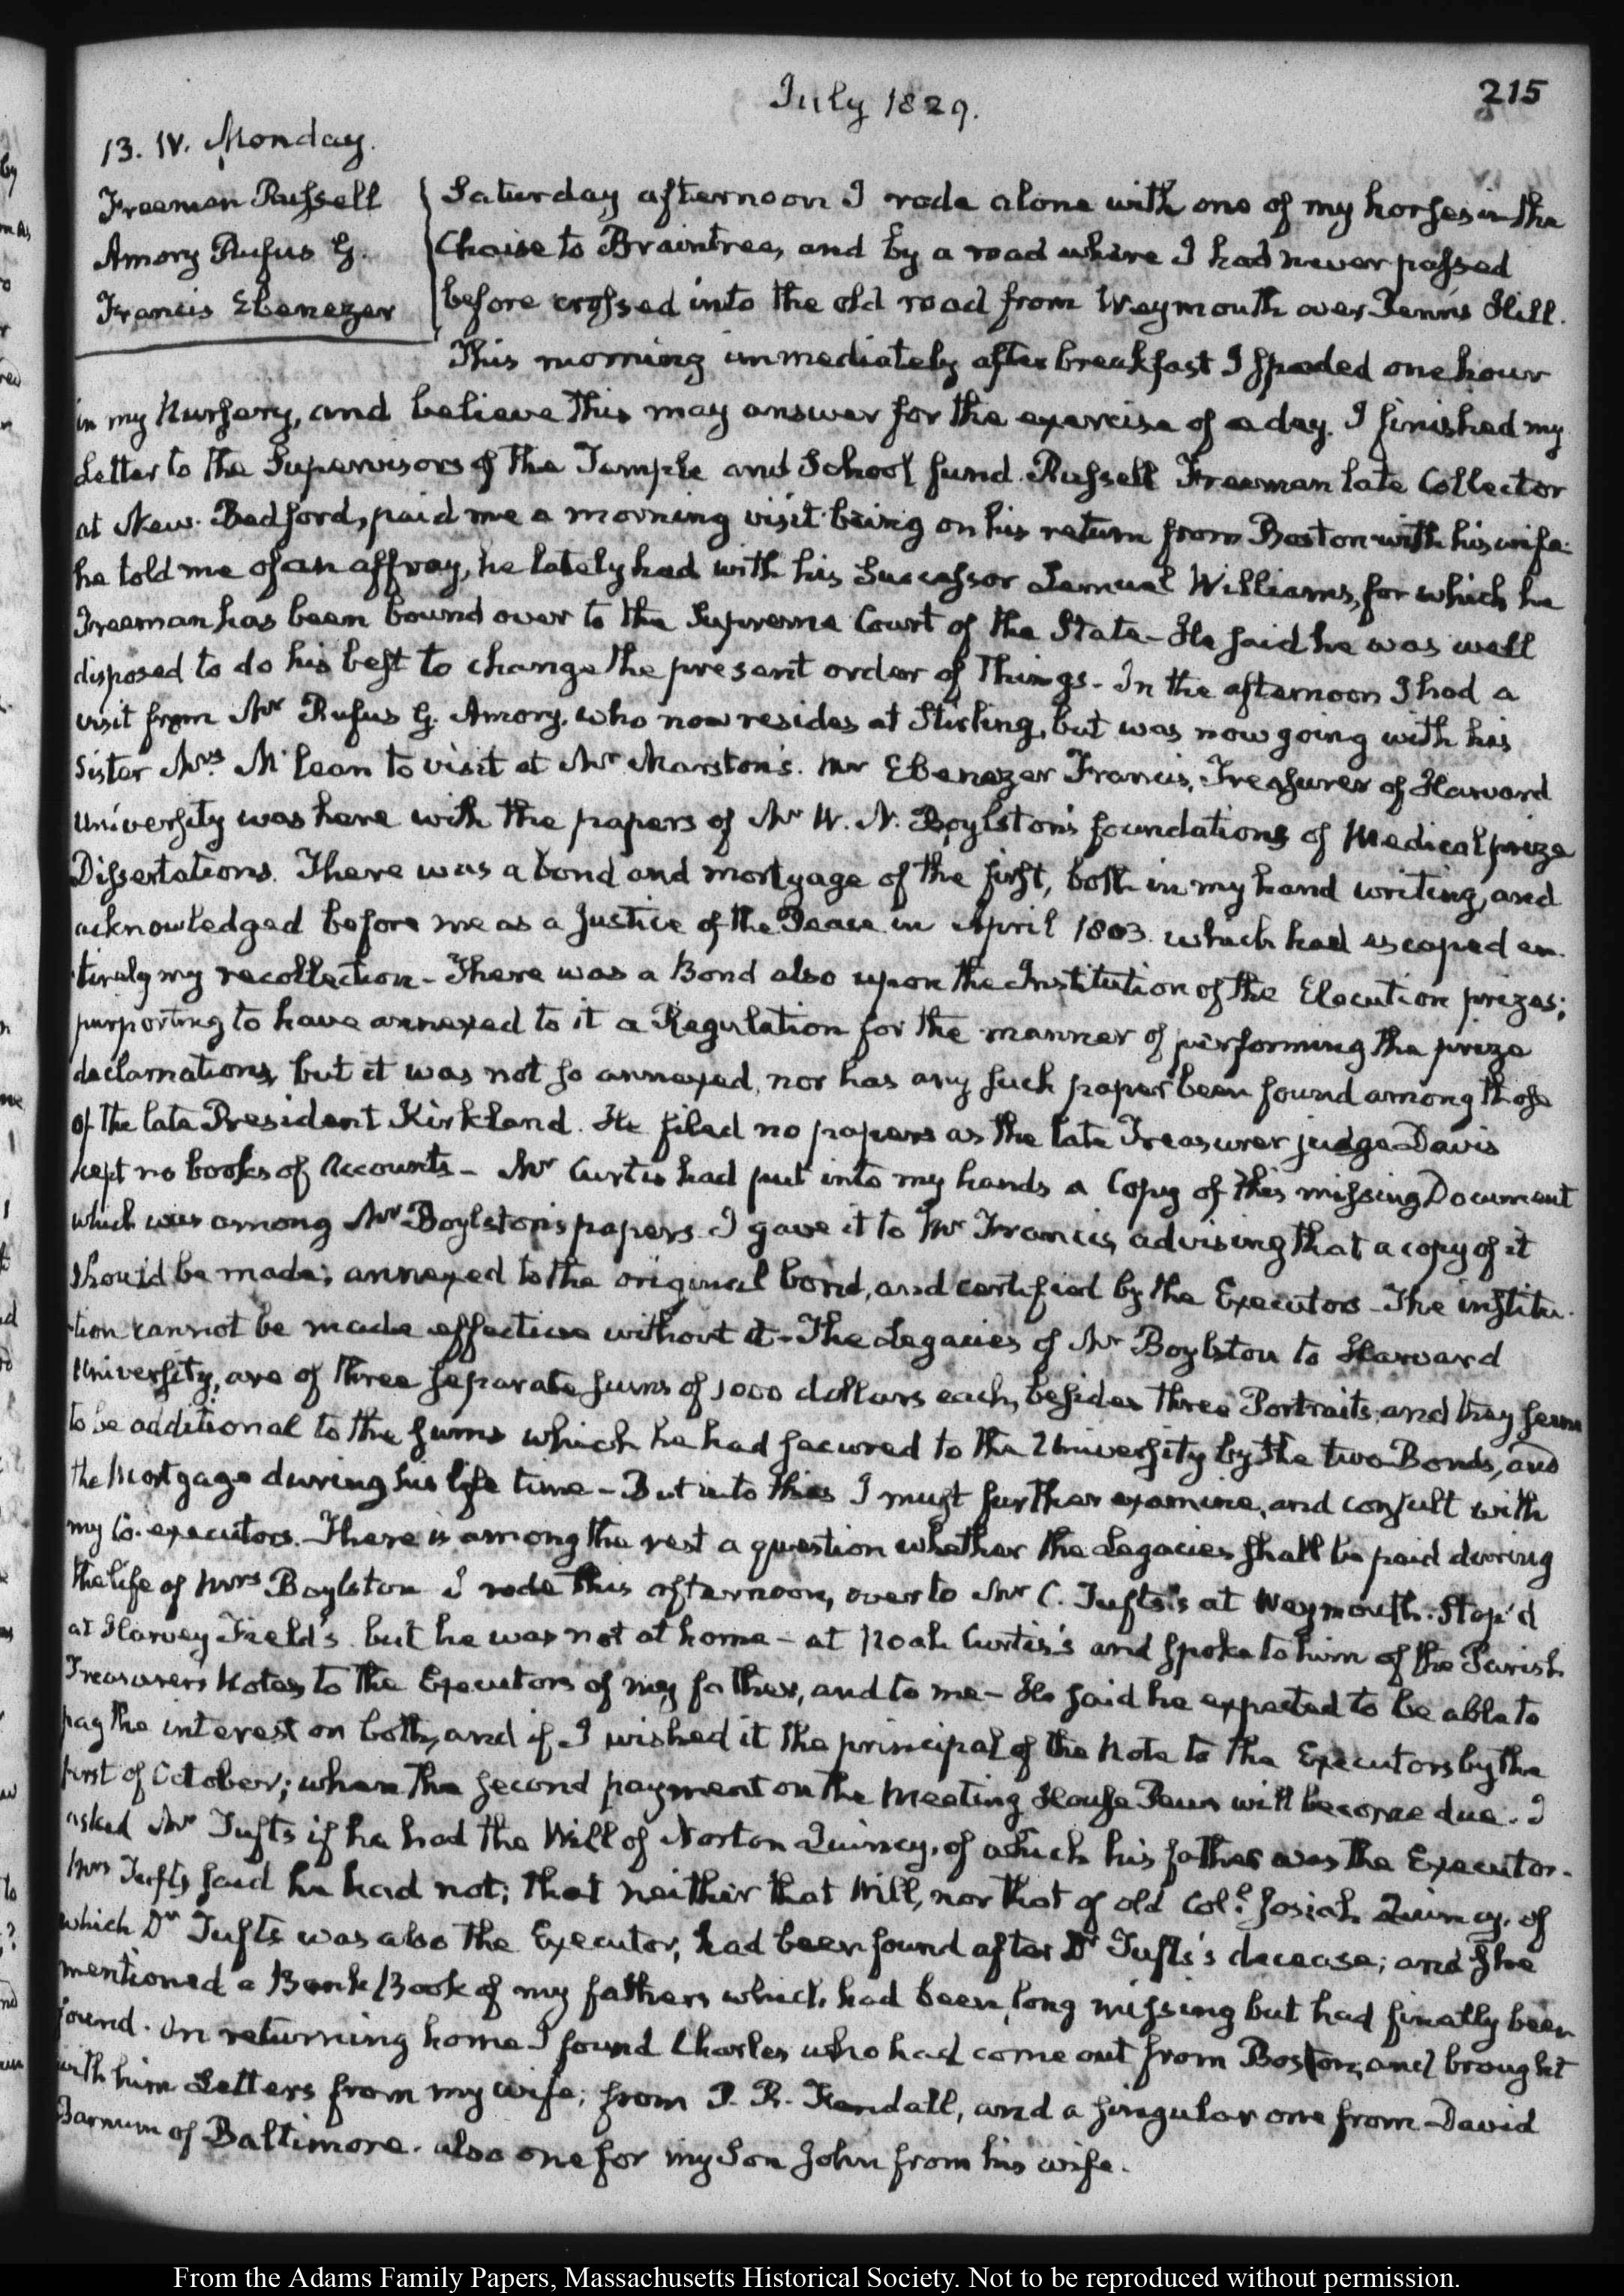 July 1829.
215
13. IV. Monday.
Freeman Russell
Amory Rufus G.
Francis Ebenezer
Saturday afternoon I rode alone with one of my horses in the
Chaise to Braintree, and by a road where I had never passed
before crossed into the old road from Weymouth over Penn's Hill.
This morning immediately after breakfast I spaded one hour
in my Nursery, and believe this may answer for the exercise of a day. I finished my
Letter to the Supervisors of the Temple and School fund. Russell Freeman late Collector
at New-Bedford, paid me a morning visit being on his return from Boston with his wife:
he told me of an affray, he lately had with his Successor Lemuel Williams, for which he
Freeman has been bound over to the Supreme Court of the State - He said he was well
disposed to do his best to change the present order of Things - In the afternoon I had a
visit from Mr Rufus G. Amory, who now resides at Stirling, but was now going with his
Sister Mrs McLean to visit at Mr Marston's. Mr Ebenezer Francis, Treasurer of Harvard
University was here with the papers of Mr W. N. Boylston's foundations of Medical prize
Dissertations. There was a bond and mortgage of the first, both in my hand writing, and
acknowledged before me as a Justice of the Peace in April 1803. which had escaped en-
tirely my recollection - There was a Bond also upon the Institution of the Elocution prizes;
purporting to have annexed to it a Regulation for the manner of performing the prize
declamations, but it was not so annexed, nor has any such paper been found among those
of the late President Kirkland. He filed no papers as the late Treasurer judge Davis
kept no books of Accounts - Mr Curtis had put into my hands a Copy of this missing Document
which was among Mr Boylston's papers. I gave it to Mr Francis, advising that a copy of it
should be made; annexed to the original bond, and certified by the Executors - The institu-
tion cannot be made effective without it - The Legacies of Mr Boylston to Harvard
University, are of three separate sums of 1000 dollars each, besides three Portraits, and they seem
to be additional to the sums which he had secured to the University by the two Bonds, and
the Mortgage during his life time - But into this I must further examine, and consult with
my Co-executors. There is among the rest a question whether the Legacies shall be paid during
the life of Mrs Boylston I rode this afternoon, over to Mr C. Tufts's at Weymouth. Stop'd
at Harvey Field's but he was not at home - at Noah Curtis's and spoke to him of the Parish
Treasurer's Notes to the Executors of my father, and to me - He said he expected to be able to
pay the interest on both, and if I wished it the principal of the Note to the Executors by the
first of October; when the second payment on the Meeting House Pews will become due. I
asked Mr Tufts if he had the Will of Norton Quincy, of which his father was the Executor.
Mrs Tufts said he had not; that neither that Will, nor that of old Coll. Josiah Quincy, of
which Dr Tufts was also the Executor, had been found after Dr Tufts's decease; and she
mentioned a Bank Book of my father's which had been long missing but had finally been
found. On returning home I found Charles who had come out from Boston, and brought
with him Letters from my wife; from P. R. Fendall, and a singular one from David
Barnum of Baltimore. also one for my Son John from his wife.
From the Adams Family Papers, Massachusetts Historical Society. Not to be reproduced without permission.